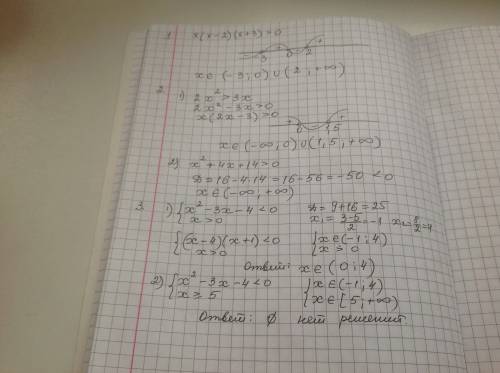 1. x(x-2)(x+3)>0
-3 0 2 +
x∈(-3;0)∪(2;+∞)
2. 1) 2x²>3x
2x²-3x>0
x(2x-3)>0
+ 0 - 1,5 +
x∈(-∞;0)∪(1,5;+∞)
2) x²+4x+14>0
D=16-4·14=16-56=-50<0
x∈(-∞;+∞)
3. 1) {x²-3x-4<0 D=9+16=25
x>0 x₁=3-5/2=-1 x₂=8/2=4
{(x-4)(x+1)<0 {x∈(-1;4)
x>0 x>0
Ответ: x∈(0;4)
2) {x²-3x-4<0 {x∈(-1;4)
x≥5 x∈[5;+∞)
Ответ: ∅ нет решений